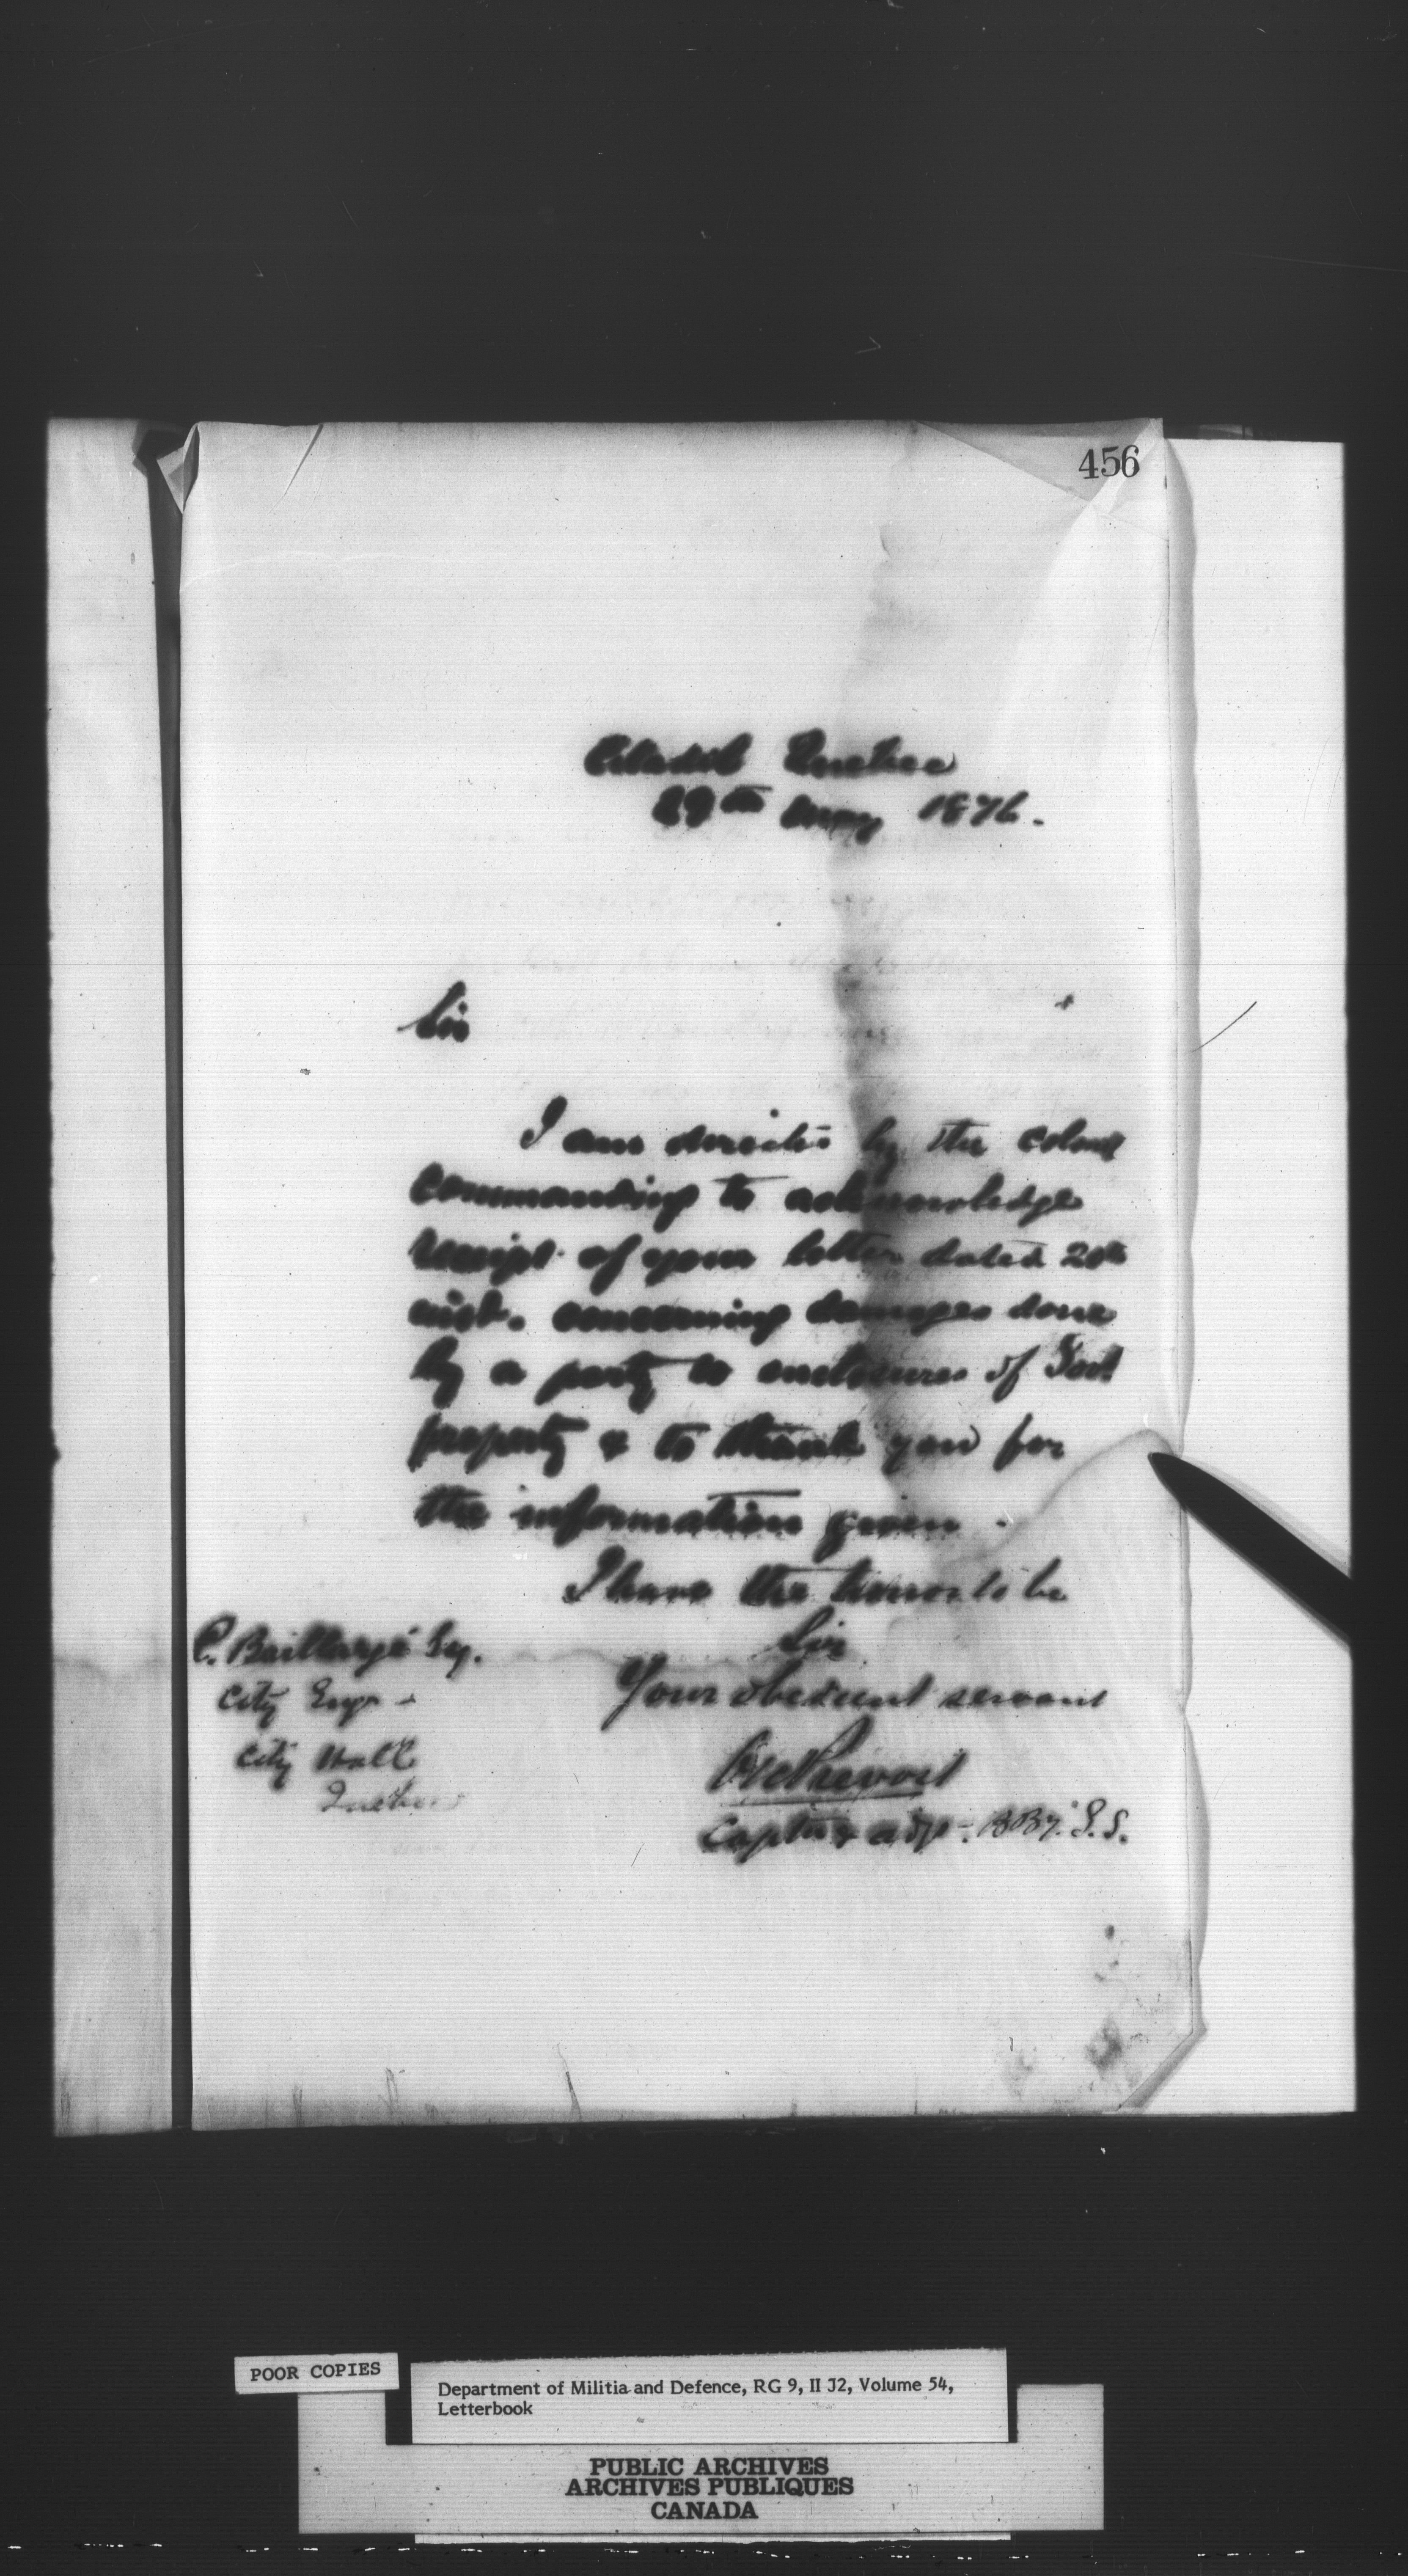 456
Citadel Quebec
29th May 1876.
Sir
I am directed by the Colonel
Commanding to acknowledge
receipt of your letter dated 20th
inst. concerning damages done
by a party to enclosures of Govt
property & to thank you for
the information given.
I have the honor to be
Sir
Your obedient servant
C. Baillargé Esq.
City Engr
City Hall
Quebec
Prevost
Captn & Adjt. B By. G.S.
POOR COPIES
Department of Militia and Defence, RG 9, II J2, Volume 54,
Letterbook
PUBLIC ARCHIVES
ARCHIVES PUBLIQUES
CANADA